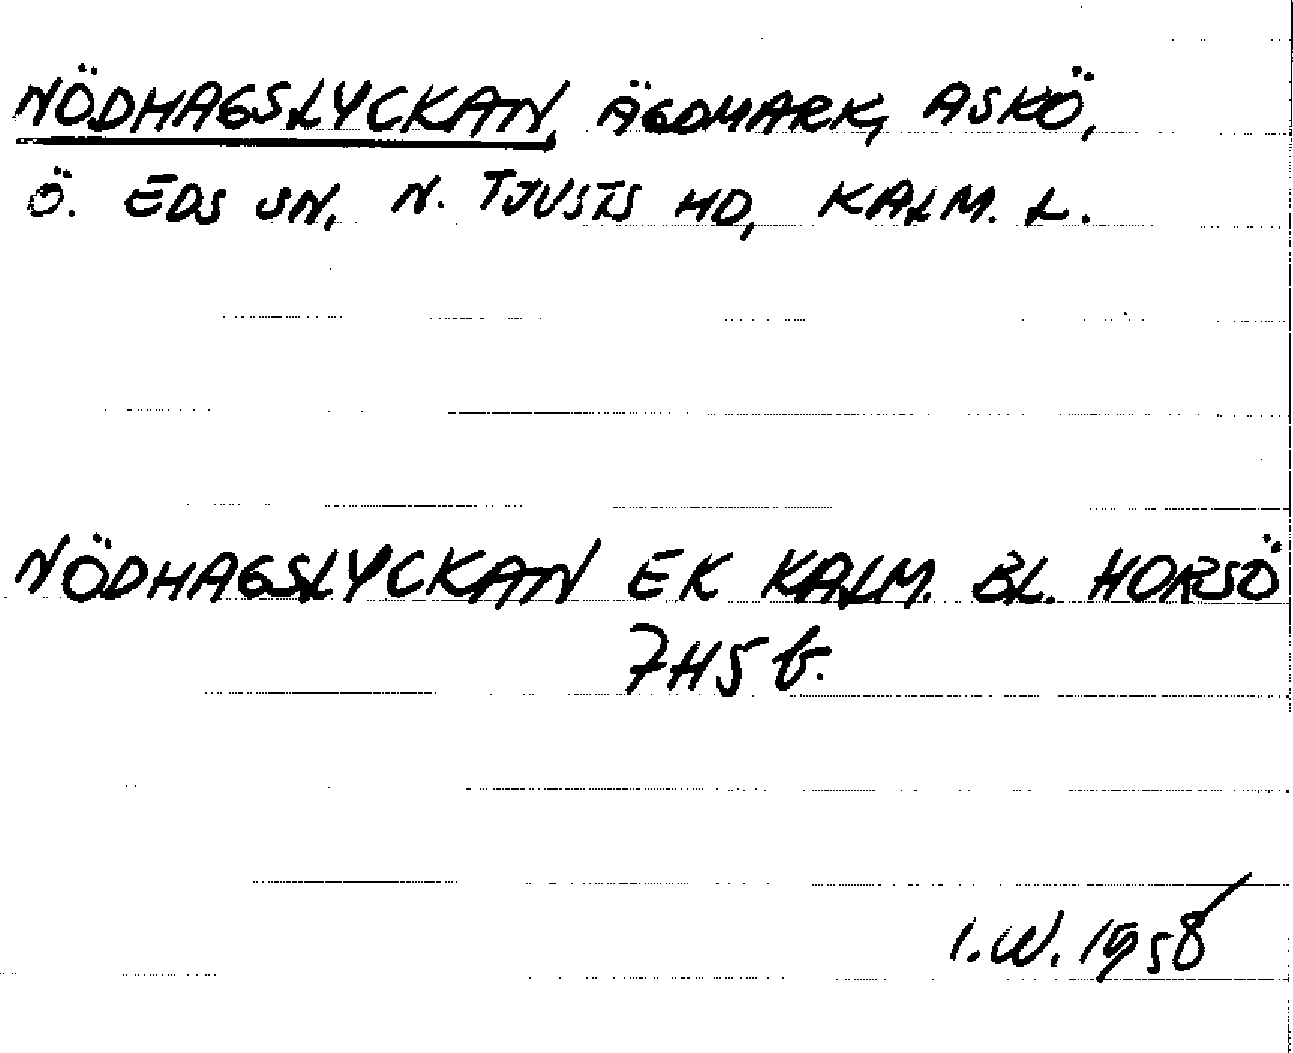 NÖDHAGSLYCKAN, ÄGOMARK, ASKÖ,
Ö. EDS SN, N. TJUSTS HD, KALM. L.
NÖDHAGSLYCKAN EK KALM. BL. HORSÖ
7H5 b.
I.W. 1958